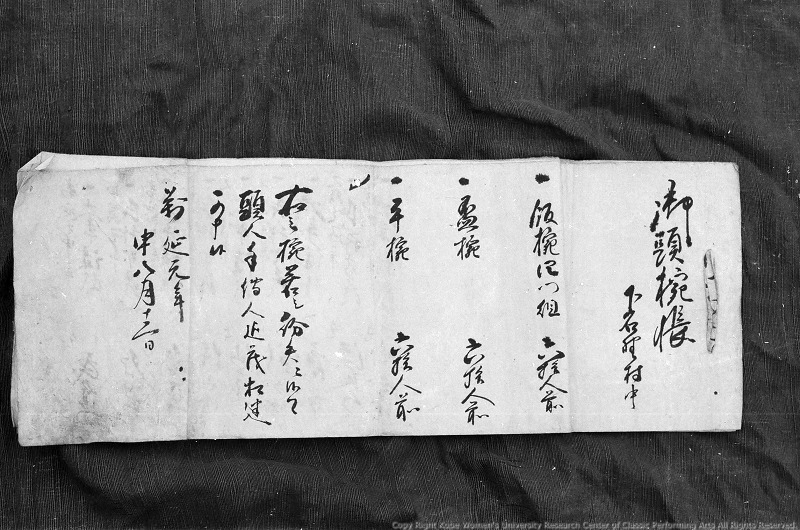 御頭椀帳
下石野村中
一 飯椀四ツ組 六拾人前
一 壺椀 六拾人前
一 平椀 六拾人前
右之椀若シ紛失之
頭人手伝人近
可申候
萬延元年
申八月十六日
Copy Right Kobe Women's University Research Center of Classic Performing Arts All Rights Reserved